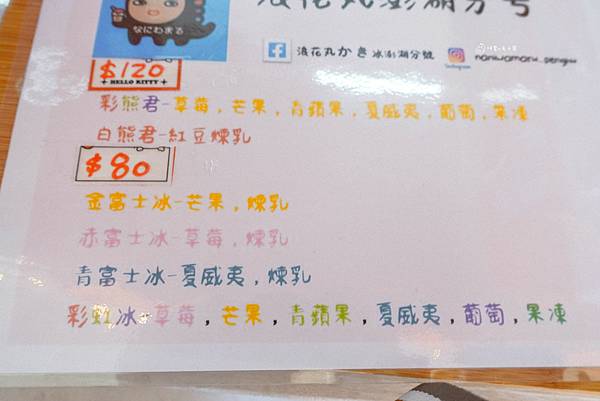 浪花丸澎湖分号
なにわまる
浪花丸かき冰澎湖分號
naniwamaru_penghu
$120
HELLO KITTY
彩熊君-草莓,芒果,青蘋果,夏威夷,葡萄,果凍
白熊君-紅豆煉乳
$80
金富士冰-芒果,煉乳
赤富士冰-草莓,煉乳
青富士冰-夏威夷,煉乳
彩虹冰-草莓,芒果,青蘋果,夏威夷,葡萄,果凍